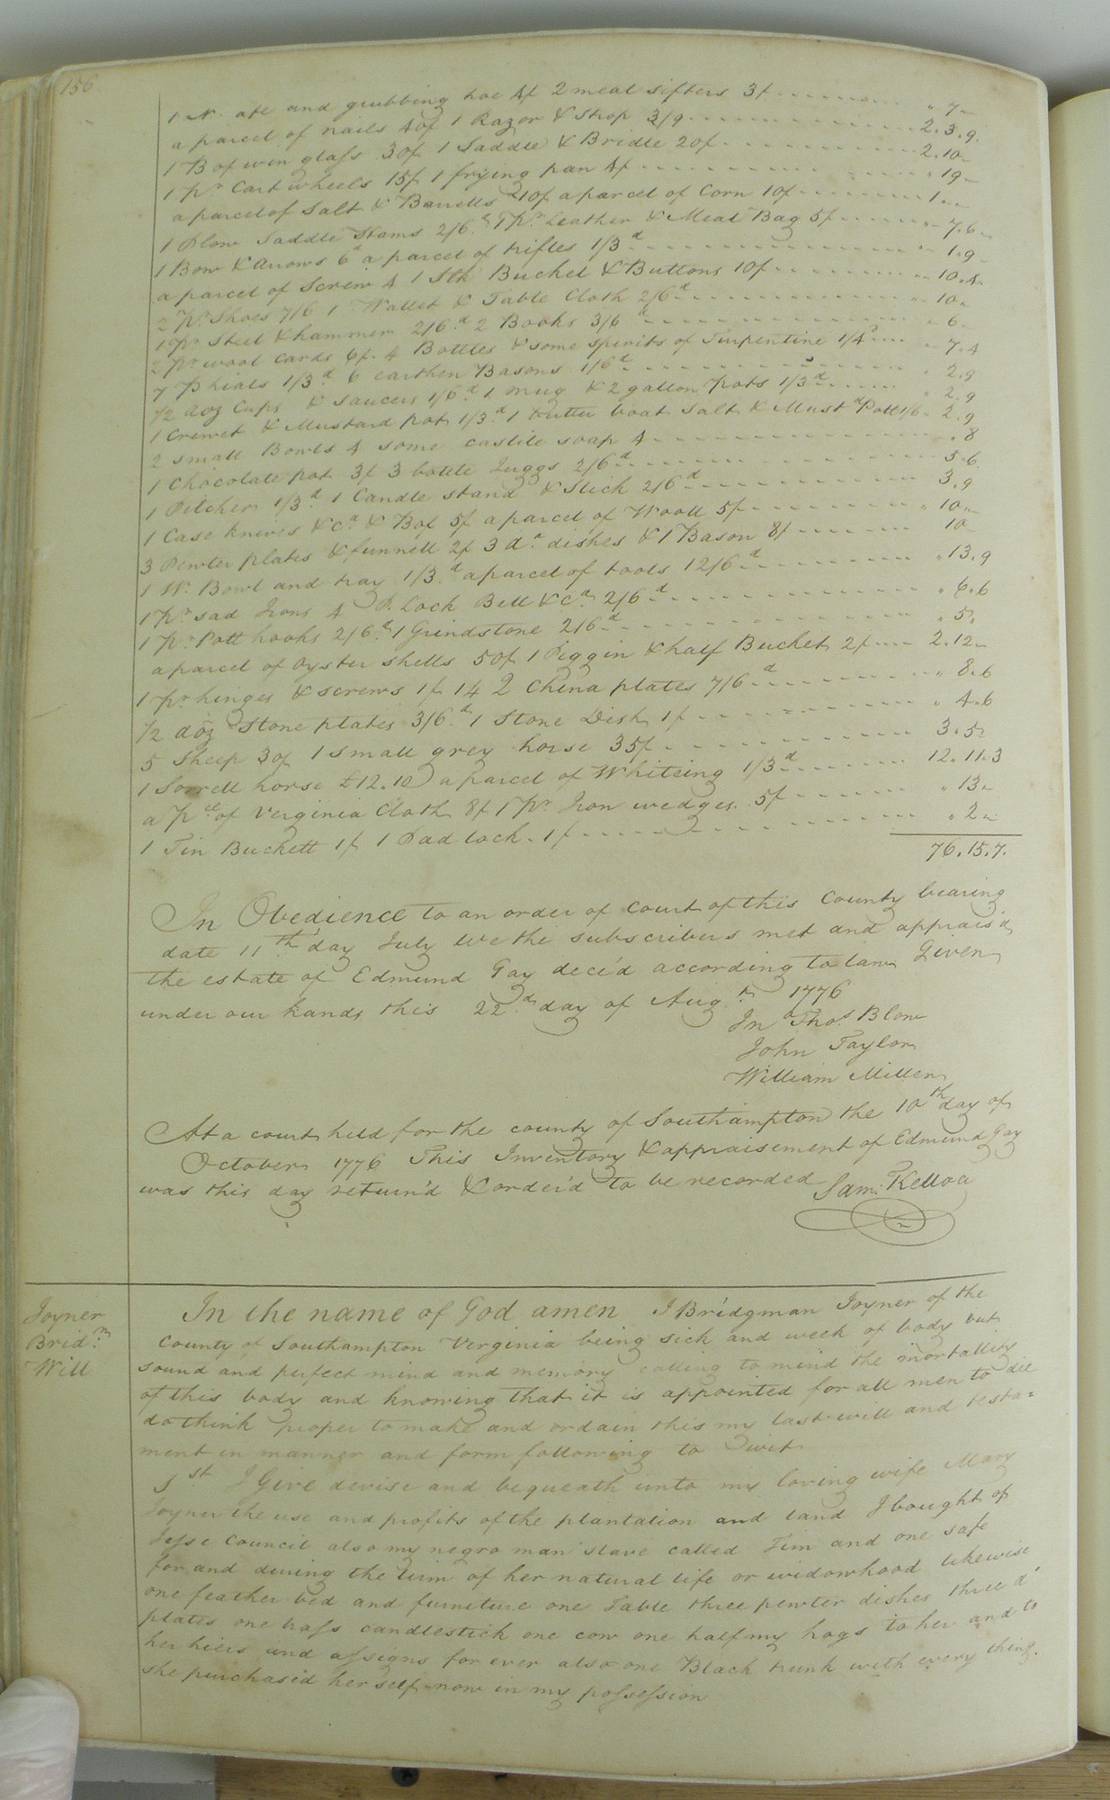 156
1 N. ax and grubbing hoe 4/ 2 meal sifters 3/ - - - - „ 7 „
a parcel of nails 40/ 1 Razor & Strop 3/9 - - - - 2. 3. 9
1 B of win glass 30/ 1 Saddle & Bridle 20/ - - - - 2. 10 „
1 pr Cart wheels 15/ 1 frying pan 4/ - - - - „ 19 „
a parcel of Salt & Barrells 10/ a parcel of Corn 10/ - - - - 1 „ „
1 Plow Saddle Hams 2/6d 1 Pr. Leather & Meal Bag 5/ - - - - „ 7. 6
1 Bow & arrows 6d a parcel of trifles 1/3d - - - - „ 1. 9
a parcel of Screws 4 1 Bucket & Buttons 10/ - - - - „ 10. 4
2 pr Shoes 7/6 1 Wallet & Table Cloth 2/6d - - - - „ 10 „
1 pr Steel & hammer 2/6d 2 Books 3/6 - - - - „ 6 „
2 pr wool Cards 6/ 4 Bottles & some spirits of Turpentine 1/4d - - „ 7. 4
7 Phials 1/3d 6 earthen Basons 1/6d - - - - „ 2. 9
1/2 doz Cups & Saucers 1/6d 1 mug & 2 gallon Pots 1/3d - - - - „ 2. 9
1 Crewet & Mustard pot 1/3d 1 butter boat Salt & Mustd Pott 1/6 - 2. 9
2 small Bowls 4 some castile soap 4 - - - - „ 8
1 Chocolate pot 3/ 3 bottle Juggs 2/6d - - - - 5. 6
1 Pitcher 1/3d 1 Candle stand & Stick 2/6d - - - - 3. 9
1 Case knives &ca & Box 5/ a parcel of Wooll 5/ - - - - „ 10 „
3 Pewter plates & funnell 2/ 3 do dishes & 1 Bason 8/ - - - - 10
1 W. Bowl and tray 1/3d a parcel of tools 12/6d - - - - „ 13. 9
1 pr sad Irons 4 P. Lock Bell &Ca 2/6d - - - - „ 6. 6
1 Pr. Pott hooks 2/6d 1 Grindstone 2/6d - - - - „ 5 „
a parcel of Oyster shells 50/ 1 Piggin & half Bucket 2/ - - 2. 12 „
1 pr hinges & screws 1/ 14 China plates 7/6d - - - - „ 8. 6
1/2 doz Stone plates 3/6d 1 Stone Dish 1/ - - - - „ 4. 6
5 Sheep 30/ 1 small grey horse 35/ - - - - 3. 5 „
1 Sorrell horse £12. 10 a parcel of Whiteing 1/3d - - - - 12. 11. 3
a pcel of Verginia Cloth 8/ 1 Pr. Iron wedges 5/ - - - - „ 13 „
1 Tin Buckett 1/ 1 Padlock 1/ - - - - „ 2 „
76. 15. 7.
In Obedience to an order of court of this County bearing
date 11th day July We the subscribers met and apprais'd
the estate of Edmund Gay dece'd according to law Given
under our hands this 22d day of Augt 1776
Jno Thos Blow
John Taylor
William Miller
At a court held for the county of Southampton the 10th day of
October 1776 This Inventory & appraisement of Edmund Gay
was this day return'd & order'd to be recorded Sam. Kelloa
Joyner
Bridm
Will
In the name of God amen I Bridgman Joyner of the
County of Southampton Verginia being sick and week of body but
sound and perfect mind and memory calling to mind the mortallity
of this body and knowing that it is appointed for all men to die
do think proper to make and ordain this my last will and testa=
ment in manner and form following to wit
1st I Give devise and bequeath unto my loving wife Mary
Joyner the use and profits of the plantation and land I bought of
Jesse Council also my negro man slave called Tim and one safe
for and during the tirm of her natural life or widowhood likewise
one feather bed and furniture one Table three pewter dishes three do
plates one brass candlestick one cow one half my hogs to her and to
her hiers and assigns for ever also one Black trunk with every thing
she purchas'd herself now in my possession